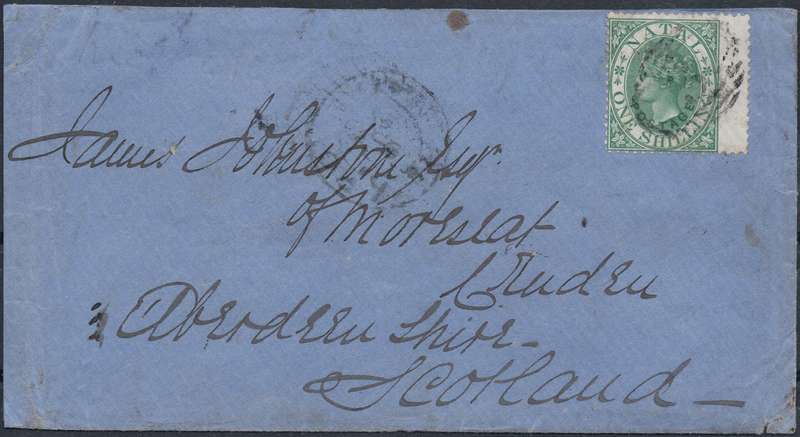 NATAL
ONE SHILLING
James Johnston Esqr.
of Moreseat
Cruden
Aberdeen Shire
Scotland